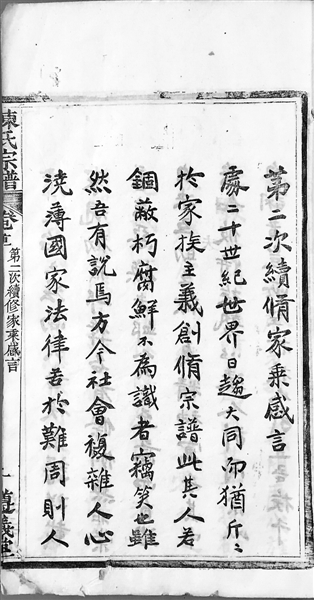 第二次續脩家乘感言
處二十世紀世界日趨大同而猶斤々
於家族主義創脩宗譜此其人若
錮蔽朽腐鮮不為識者竊笑也雖
然吾有說焉方今社會複雜人心
澆薄國家法律苦於難周則人
陳氏宗譜
卷首
第二次續修家乘感言
一